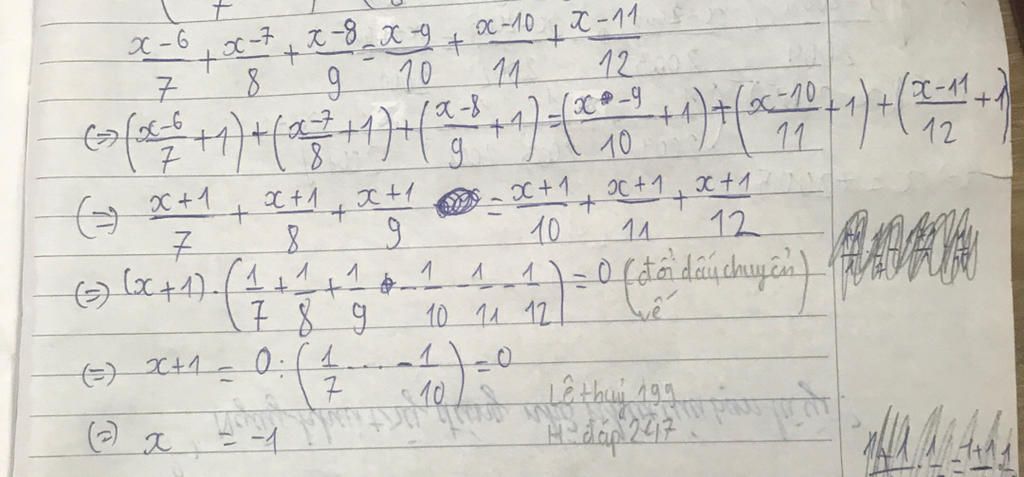 7 8
x-6/7 + x-7/8 + x-8/9 = x-9/10 + x-10/11 + x-11/12
(=) (x-6/7 + 1) + (x-7/8 + 1) + (x-8/9 + 1) = (x-9/10 + 1) + (x-10/11 + 1) + (x-11/12 + 1)
(=) x+1/7 + x+1/8 + x+1/9 = x+1/10 + x+1/11 + x+1/12
(=) (x+1) . (1/7 + 1/8 + 1/9 - 1/10 - 1/11 - 1/12) = 0 (đổi dấu chuyển vế)
(=) x+1 = 0 : (1/7 ... - 1/10) = 0
(=) x = -1
Lê thuý 199
H đáp 247